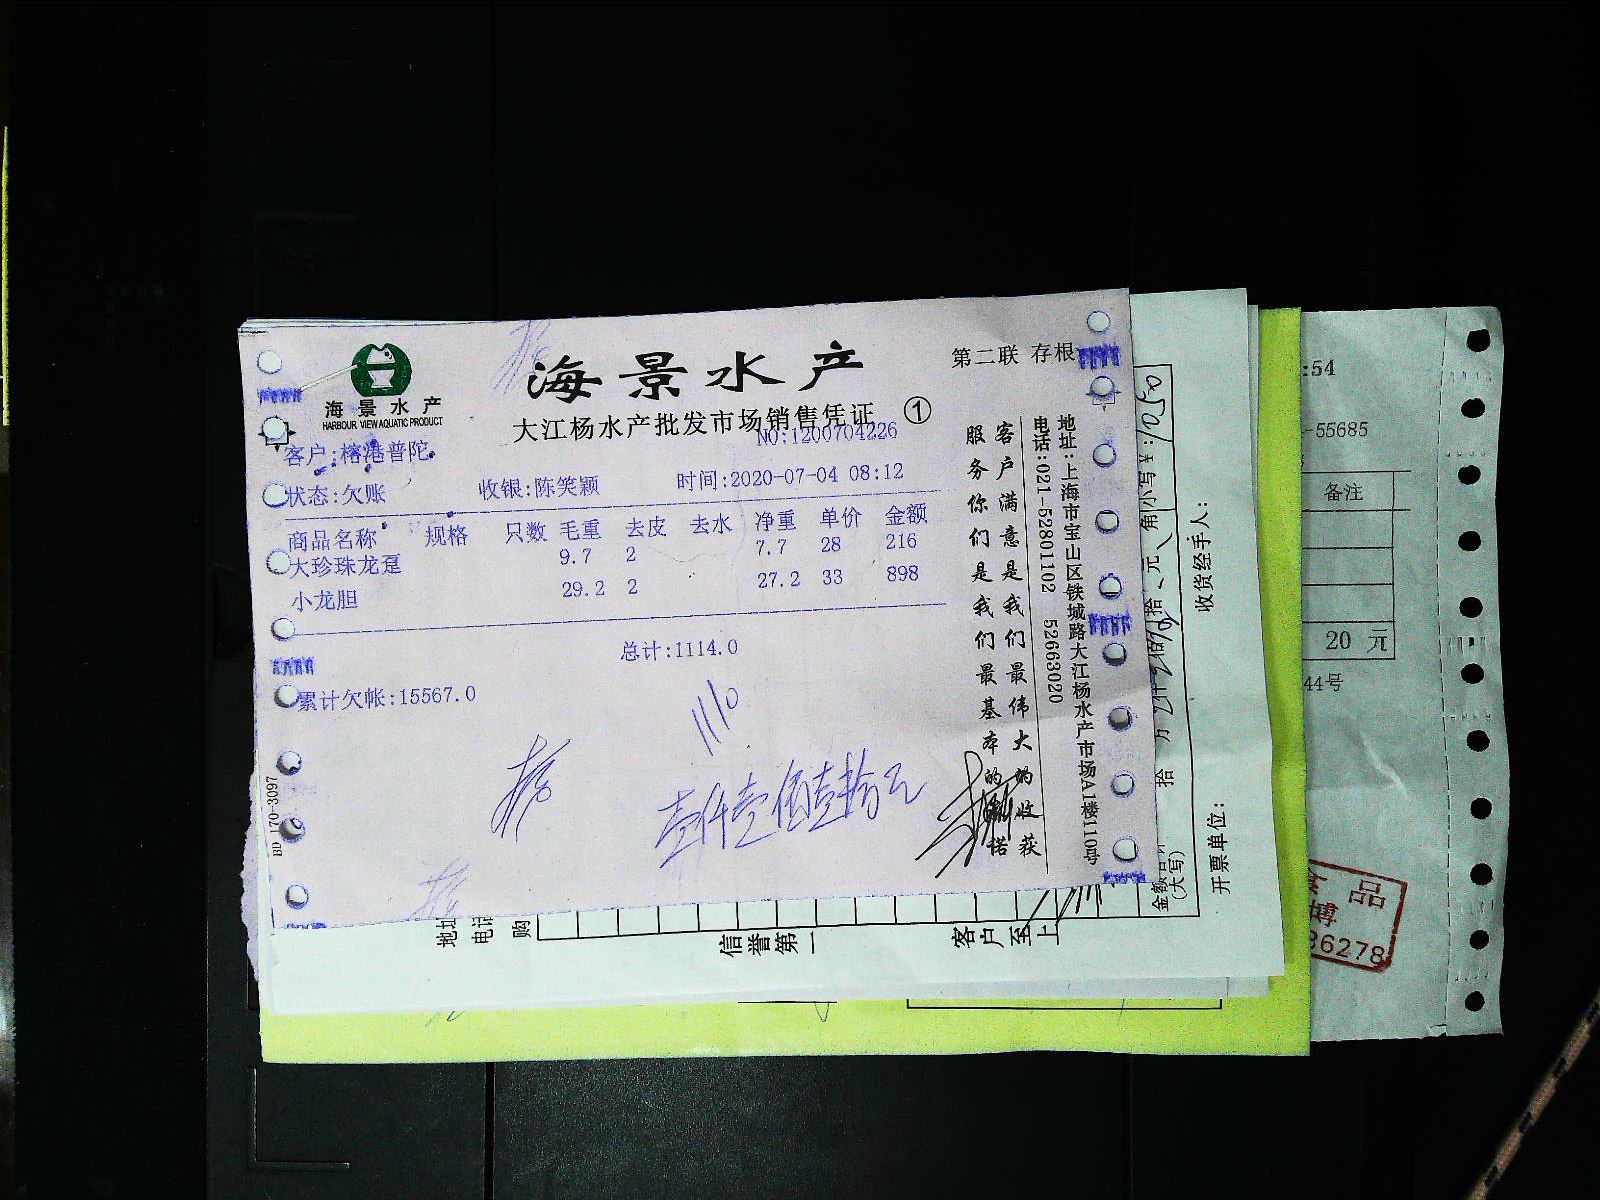 海景水产
HARBOUR VIEW AQUATIC PRODUCT
海景水产
第二联 存根
大江杨水产批发市场销售凭证 ①
NO:1200704226
客户:榕港普陀
状态:欠账 收银:陈笑颖 时间:2020-07-04 08:12
商品名称 规格 只数 毛重 去皮 去水 净重 单价 金额
大珍珠龙趸 9.7 2 7.7 28 216
小龙胆 29.2 2 27.2 33 898
总计:1114.0
累计欠帐:15567.0
1110
壹仟壹佰壹拾元
BD 170-3097
客户满意是我们最伟大的收获
服务你们是我们最基本的
地址:上海市宝山区铁城路大江杨水产市场A1楼110号
电话:021-52801102 52663020
小写¥:
角
元
拾
佰
仟
万
拾
(大写)
收货经手人:
开票单位:
地址
电话
购
信誉第一
客户至上
:54
-55685
备注
20 元
44号
品
博
36278